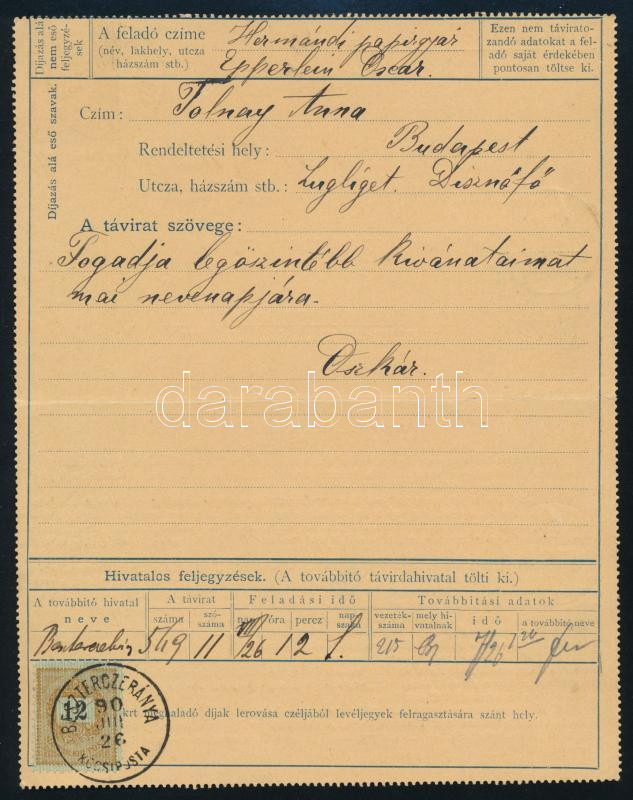 Díjazás alá nem eső feljegyzések
A feladó czíme
(név, lakhely, utcza házszám stb.)
Hermándi papirgyár
Epperlein Oscar.
Ezen nem táviratozandó adatokat a feladó saját érdekében pontosan töltse ki.
Díjazás alá eső szavak.
Czím: Tolnay Anna
Rendeltetési hely: Budapest
Utcza, házszám stb.: Zugliget. Disznófő
A távirat szövege:
Fogadja legőszintébb kivánataimat
mai nevenapjára.
Oszkár.
darabanth
Hivatalos feljegyzések. (A továbbitó távirdahivatal tölti ki.)
A továbbitó hivatal neve
A távirat
száma
szószáma
Feladási idő
nap
óra
perez
napszaka
Továbbítási adatok
vezetékszáma
mely hivatalnak
idő
a továbbitó neve
549 11 VII/26 12
215 7/26
12
BESZTERCZEBÁNYA
90
JUL
26
KOCSIPOSTA
krt meghaladó dijak lerovása czéljából levéljegyek felragasztására szánt hely.